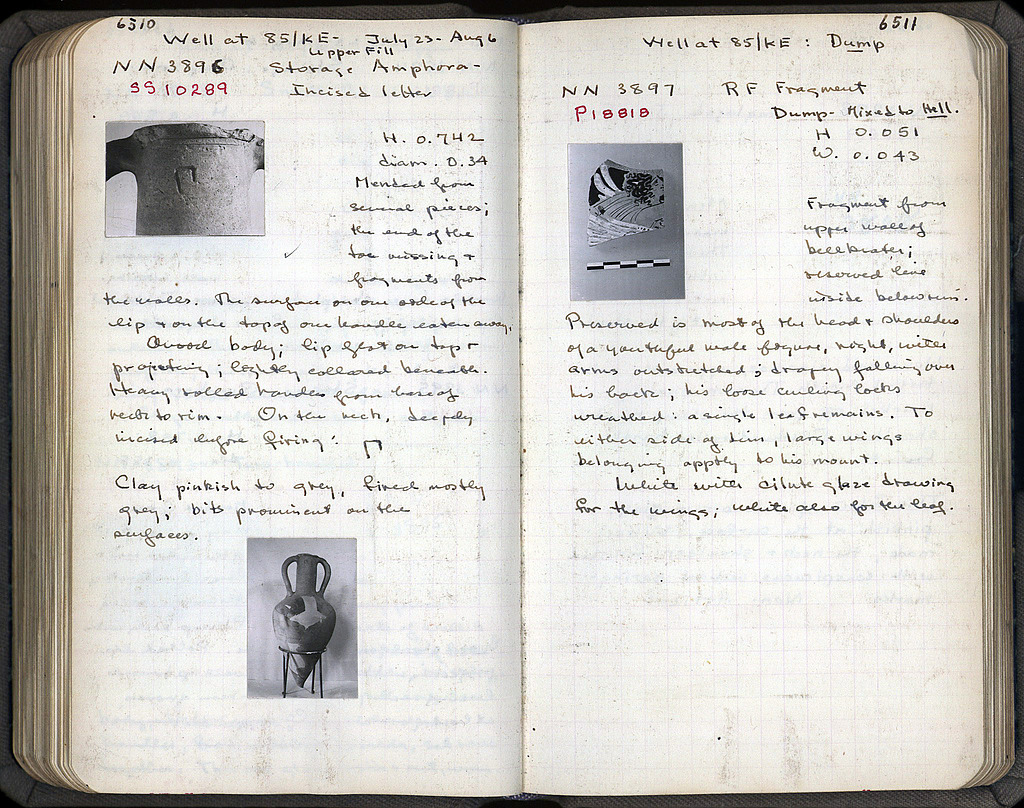 6310
Well at 85/KE - July 23 - Aug 6
Upper Fill
NN 3896 Storage Amphora -
SS 10289 Incised letter
H. 0.742
diam. 0.34
Mended from
several pieces;
the end of the
toe missing +
fragments from
the walls. The surface on one side of the
lip + on the top of one handle eaten away.
Ovoid body; lip flat on top +
projecting; lightly collared beneath.
Heavy rolled handles from base of
neck to rim. On the neck, deeply
incised before firing:
Clay pinkish to grey, fired mostly
grey; bits prominent on the
surfaces.
6511
Well at 85/KE : Dump
NN 3897 RF Fragment
P18818 Dump - Mixed to Hell.
H 0.051
W. 0.043
Fragment from
upper wall of
bell krater;
reserved line
inside below rim.
Preserved is most of the head + shoulders
of a youthful male figure, right, with
arms outstretched; drapery falling over
his back; his loose curling locks
wreathed: a single leaf remains. To
either side of him, large wings
belonging apptly to his mount.
White with dilute glaze drawing
for the wings; white also for the leaf.